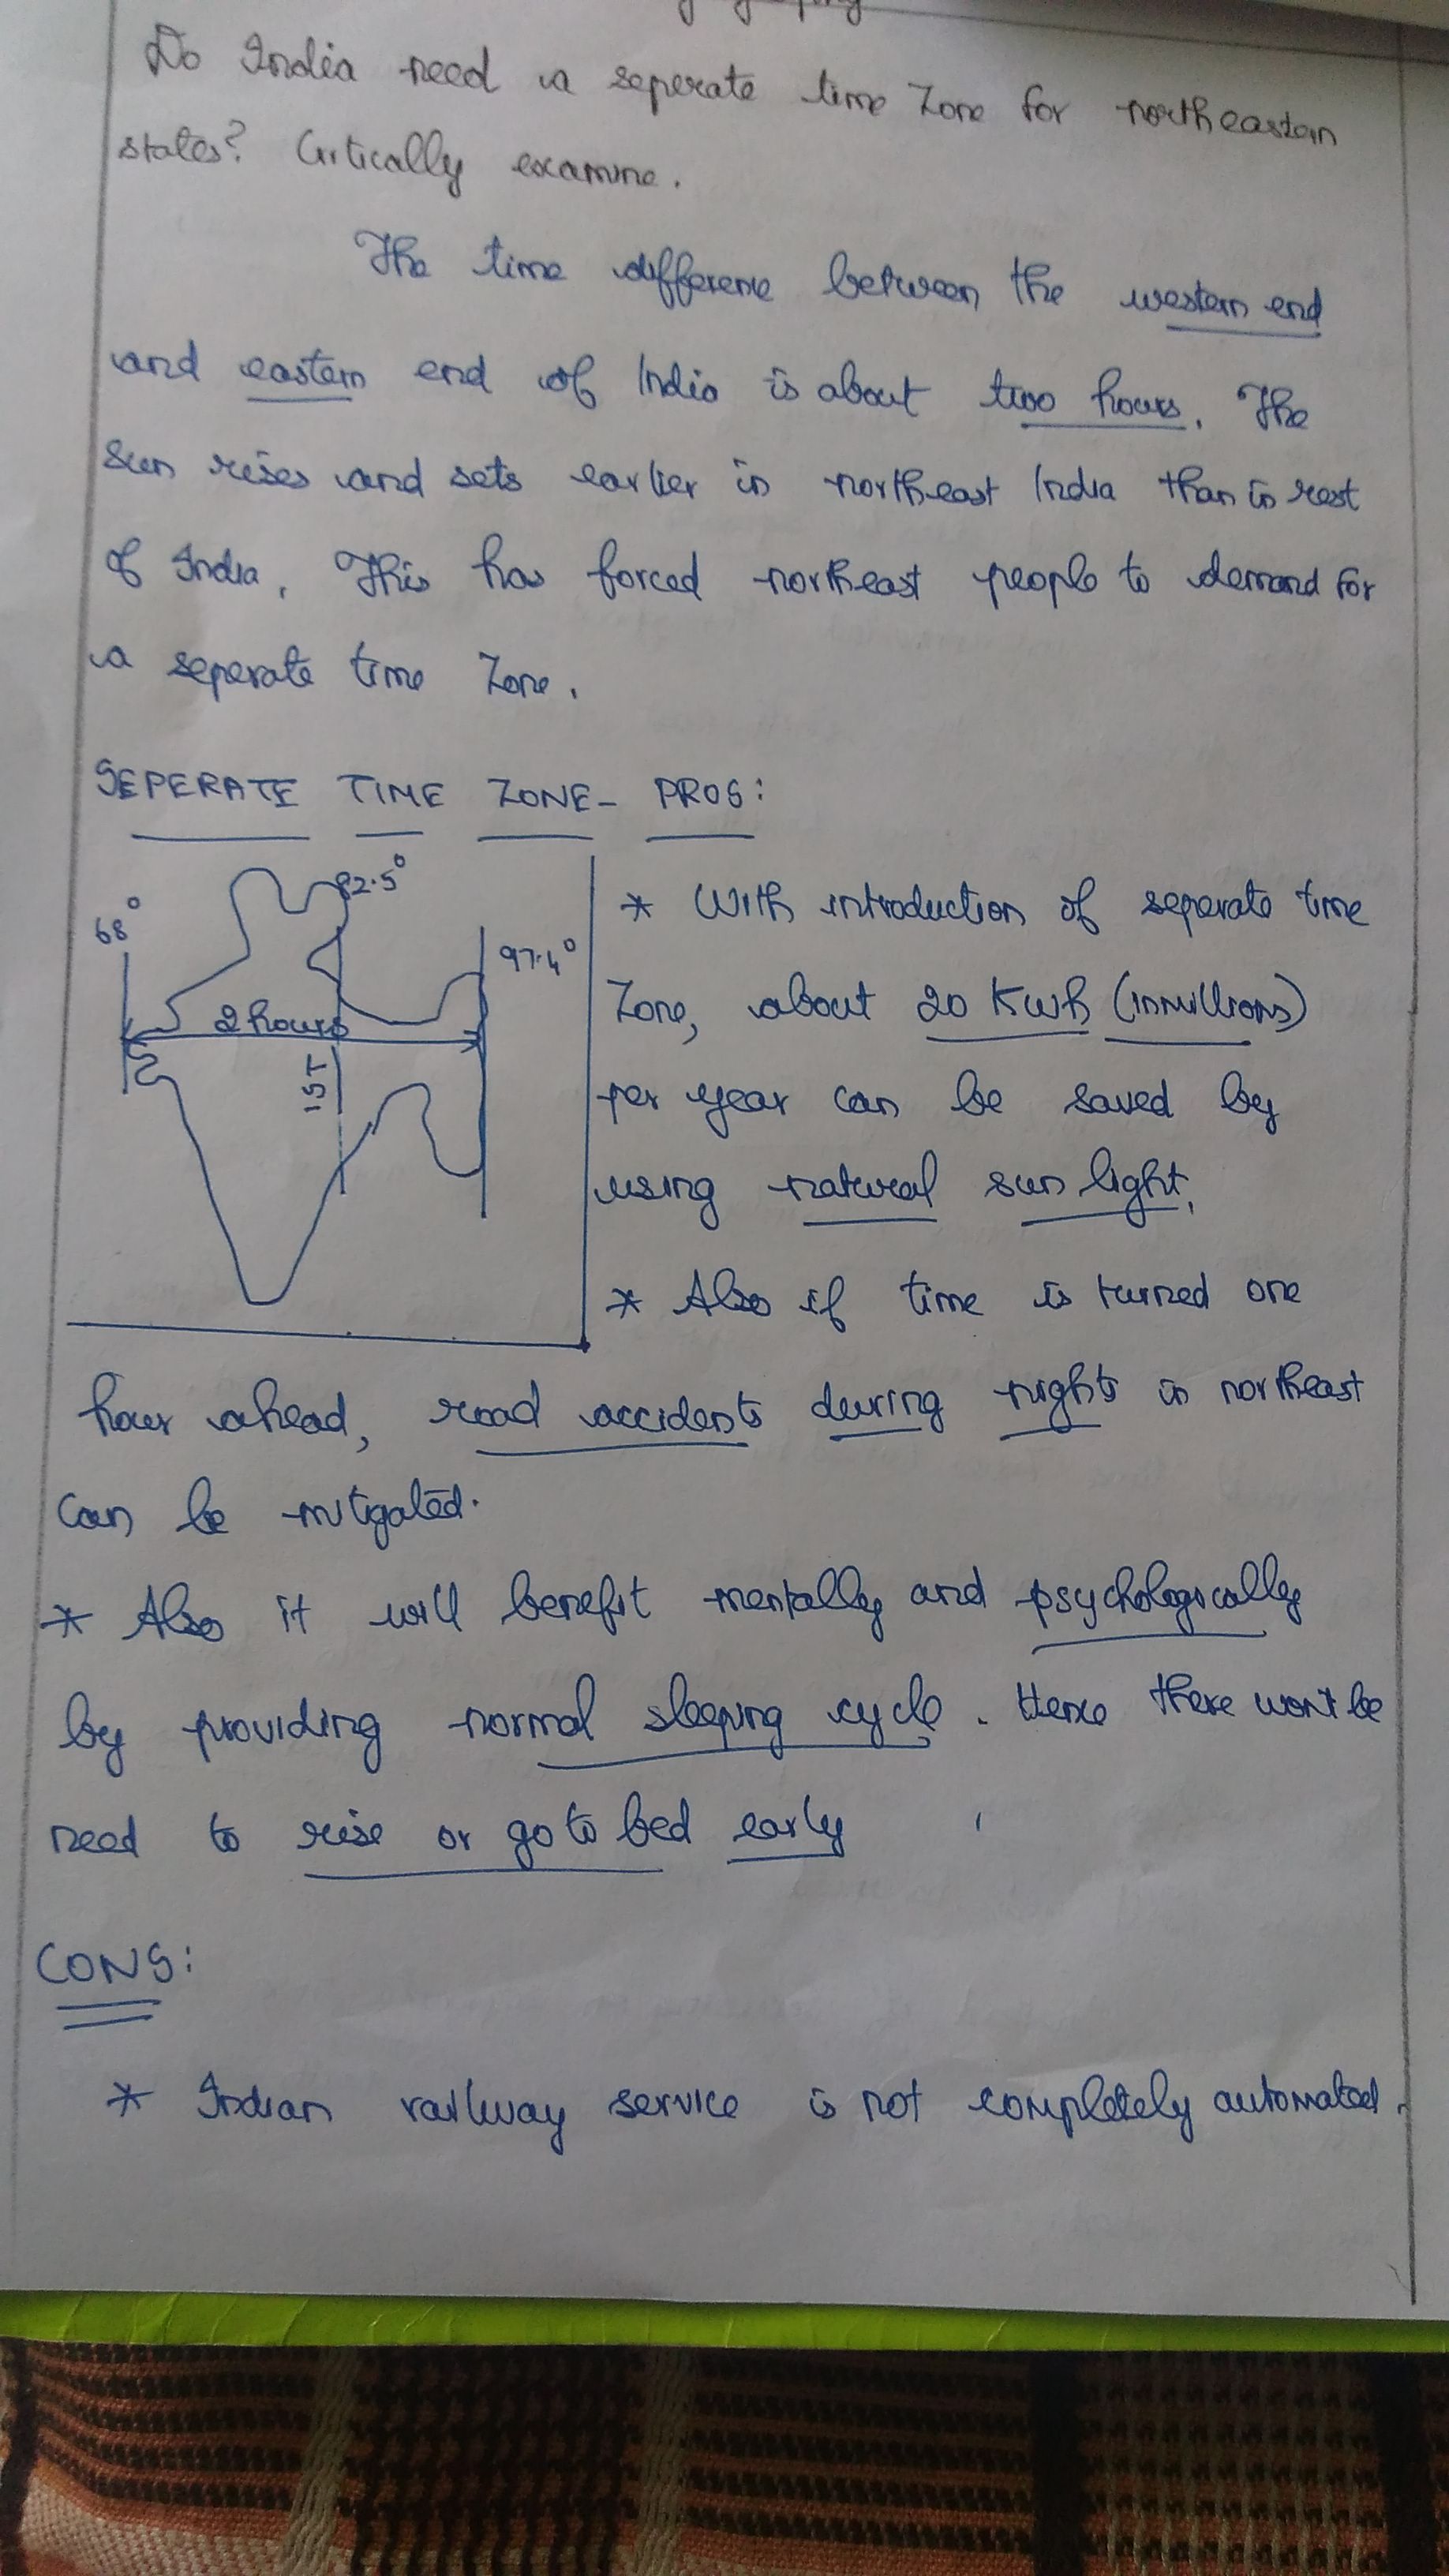 Do India need a seperate time zone for northeastern
states? Critically examine.
The time difference between the western end
and eastern end of India is about two hours. The
sun rises and sets earlier in northeast India than in rest
of India. This has forced northeast people to demand for
a seperate time zone.
SEPERATE TIME ZONE- PROS:
68°
82.5°
97.4°
2 hours
IST
* With introduction of seperate time
zone, about 20 Kwh (in millions)
per year can be saved by
using natural sun light.
* Also if time is turned one
hour ahead, road accidents during nights in northeast
can be mitigated.
* Also it will benefit mentally and psychologically
by providing normal sleeping cycle. Hence there won't be
need to rise or go to bed early
CONS:
* Indian railway service is not completely automated.